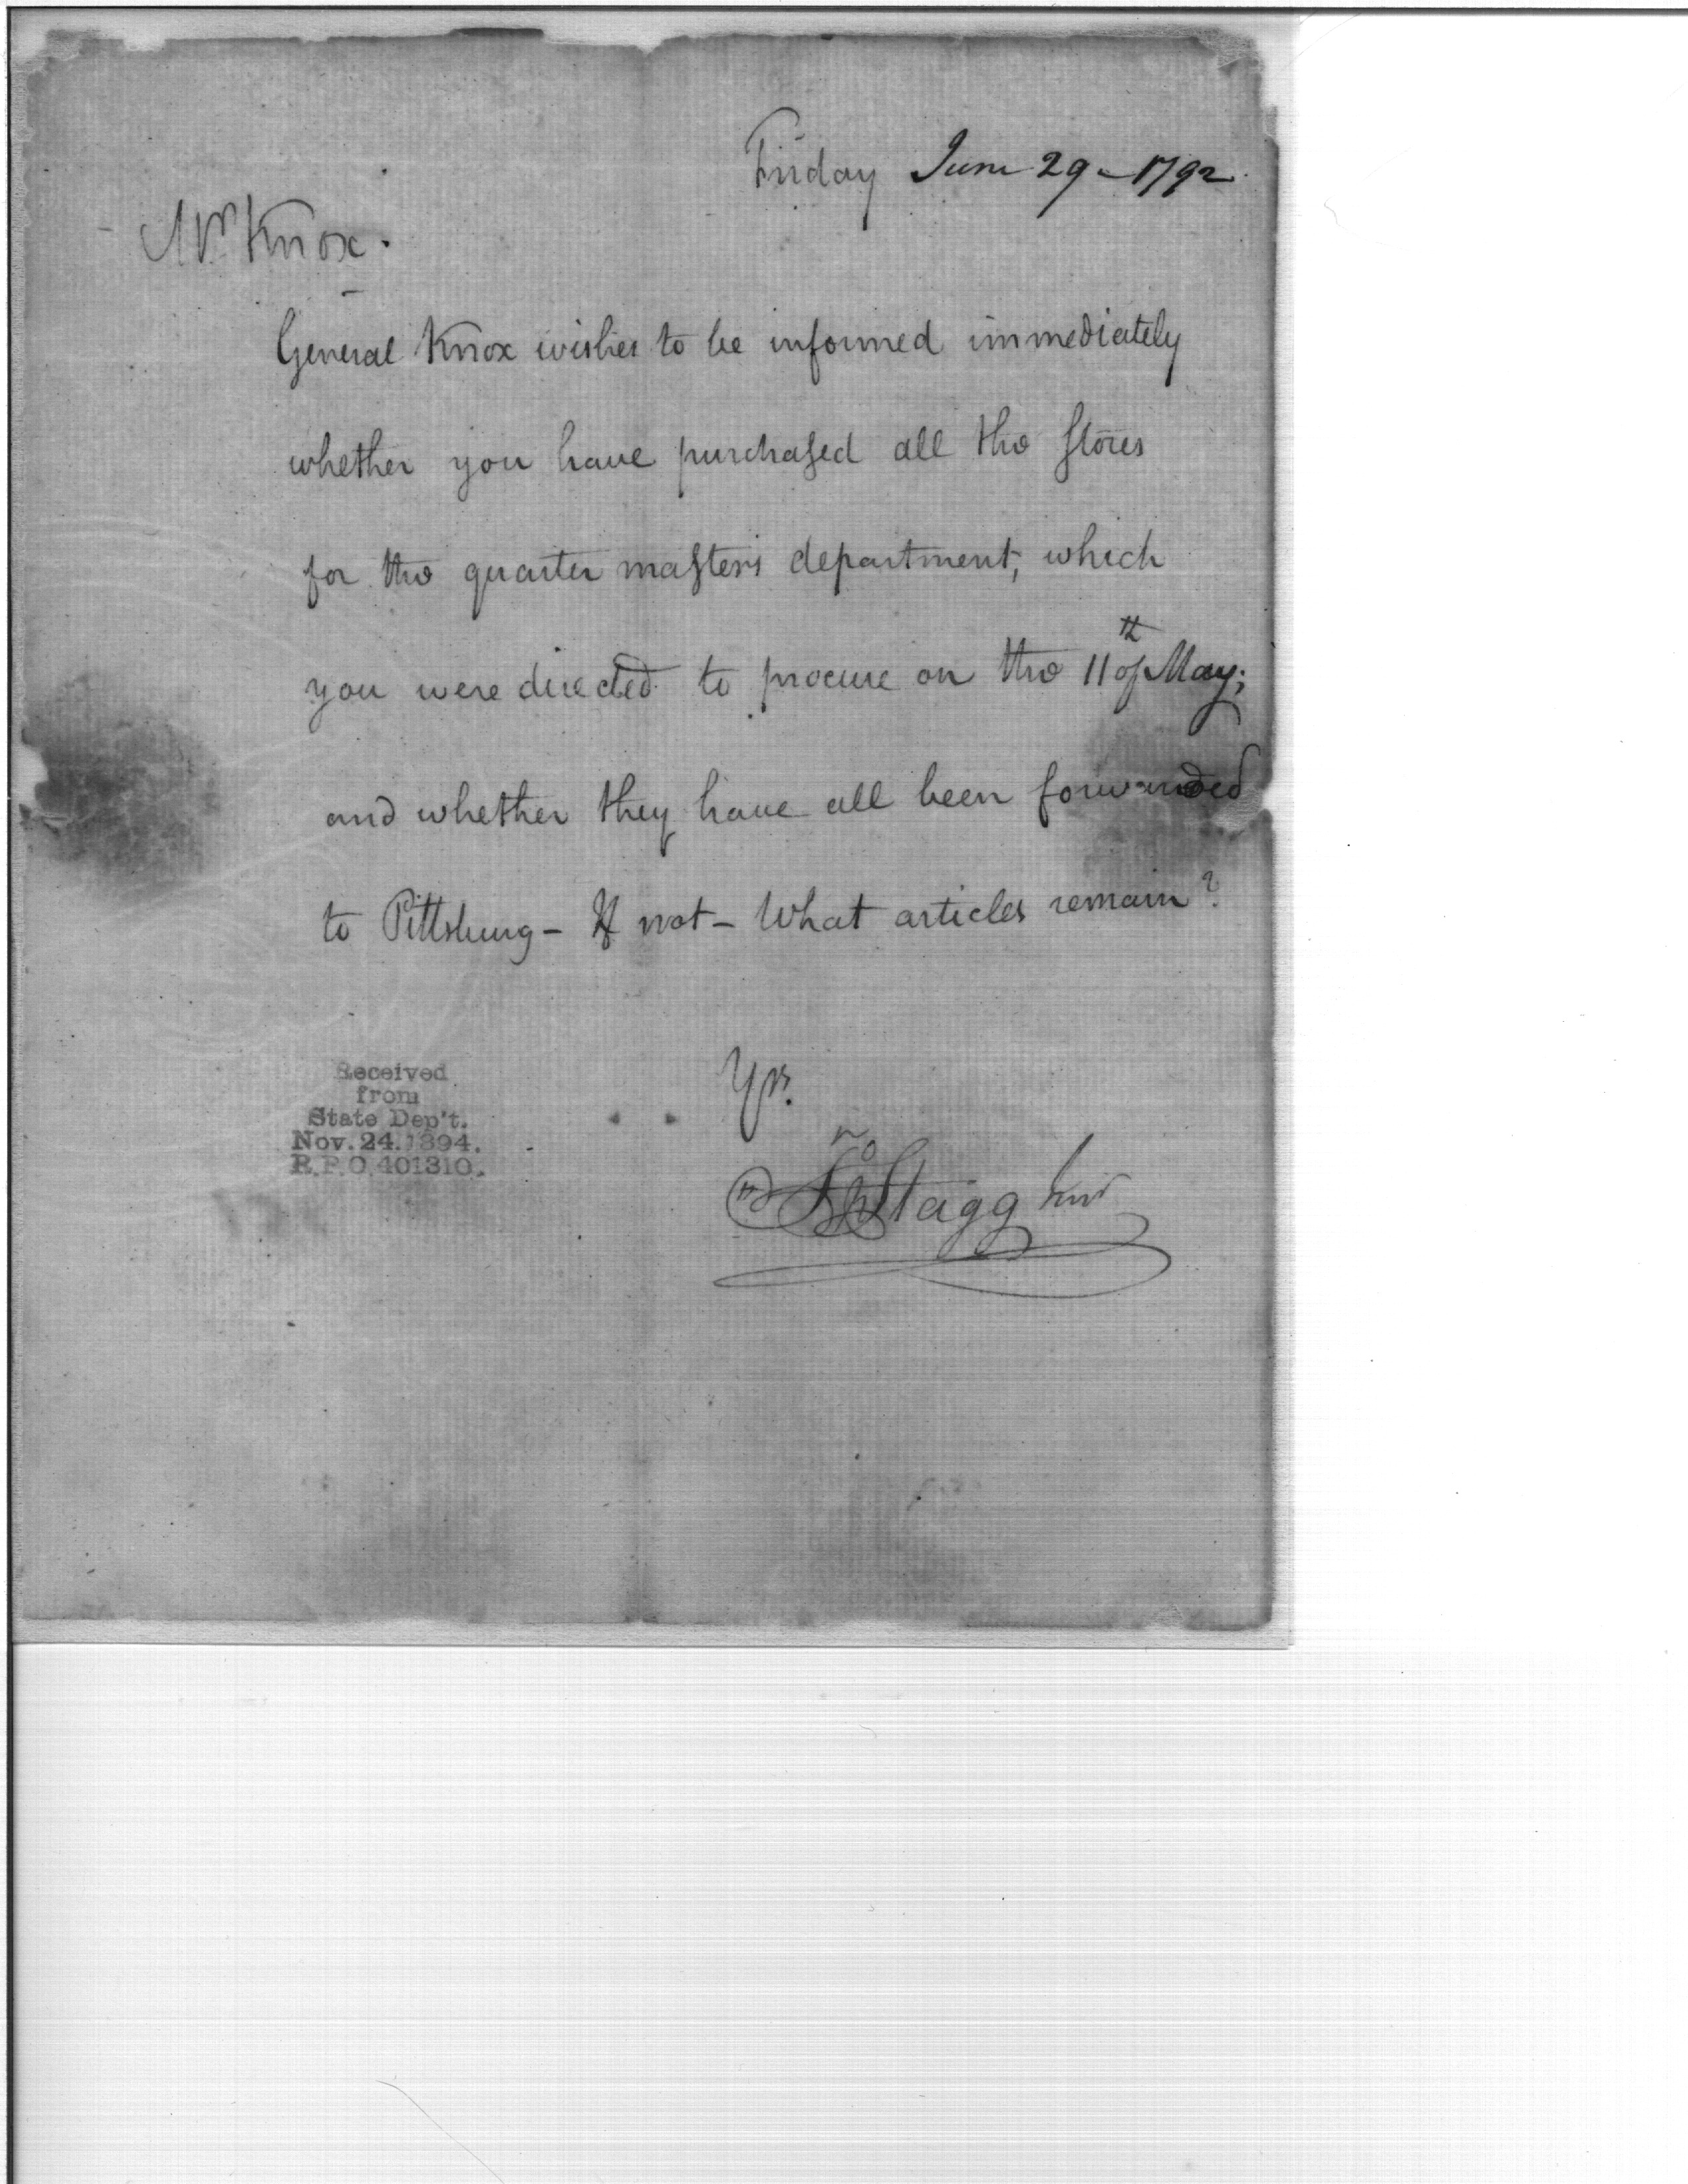 Friday June 29 – 1792
Mr. Knox.
General Knox wishes to be informed immediately
whether you have purchaſed all the ſtores
for the quarter maſter's department, which
you were directed to procure on the 11th of May;
and whether they have all been forwarded
to Pittsburg – If not – What articles remain?
Yrs.
Jno Stagg Junr
Received
from
State Dep't.
Nov. 24. 1894.
R.P.O. 401310.